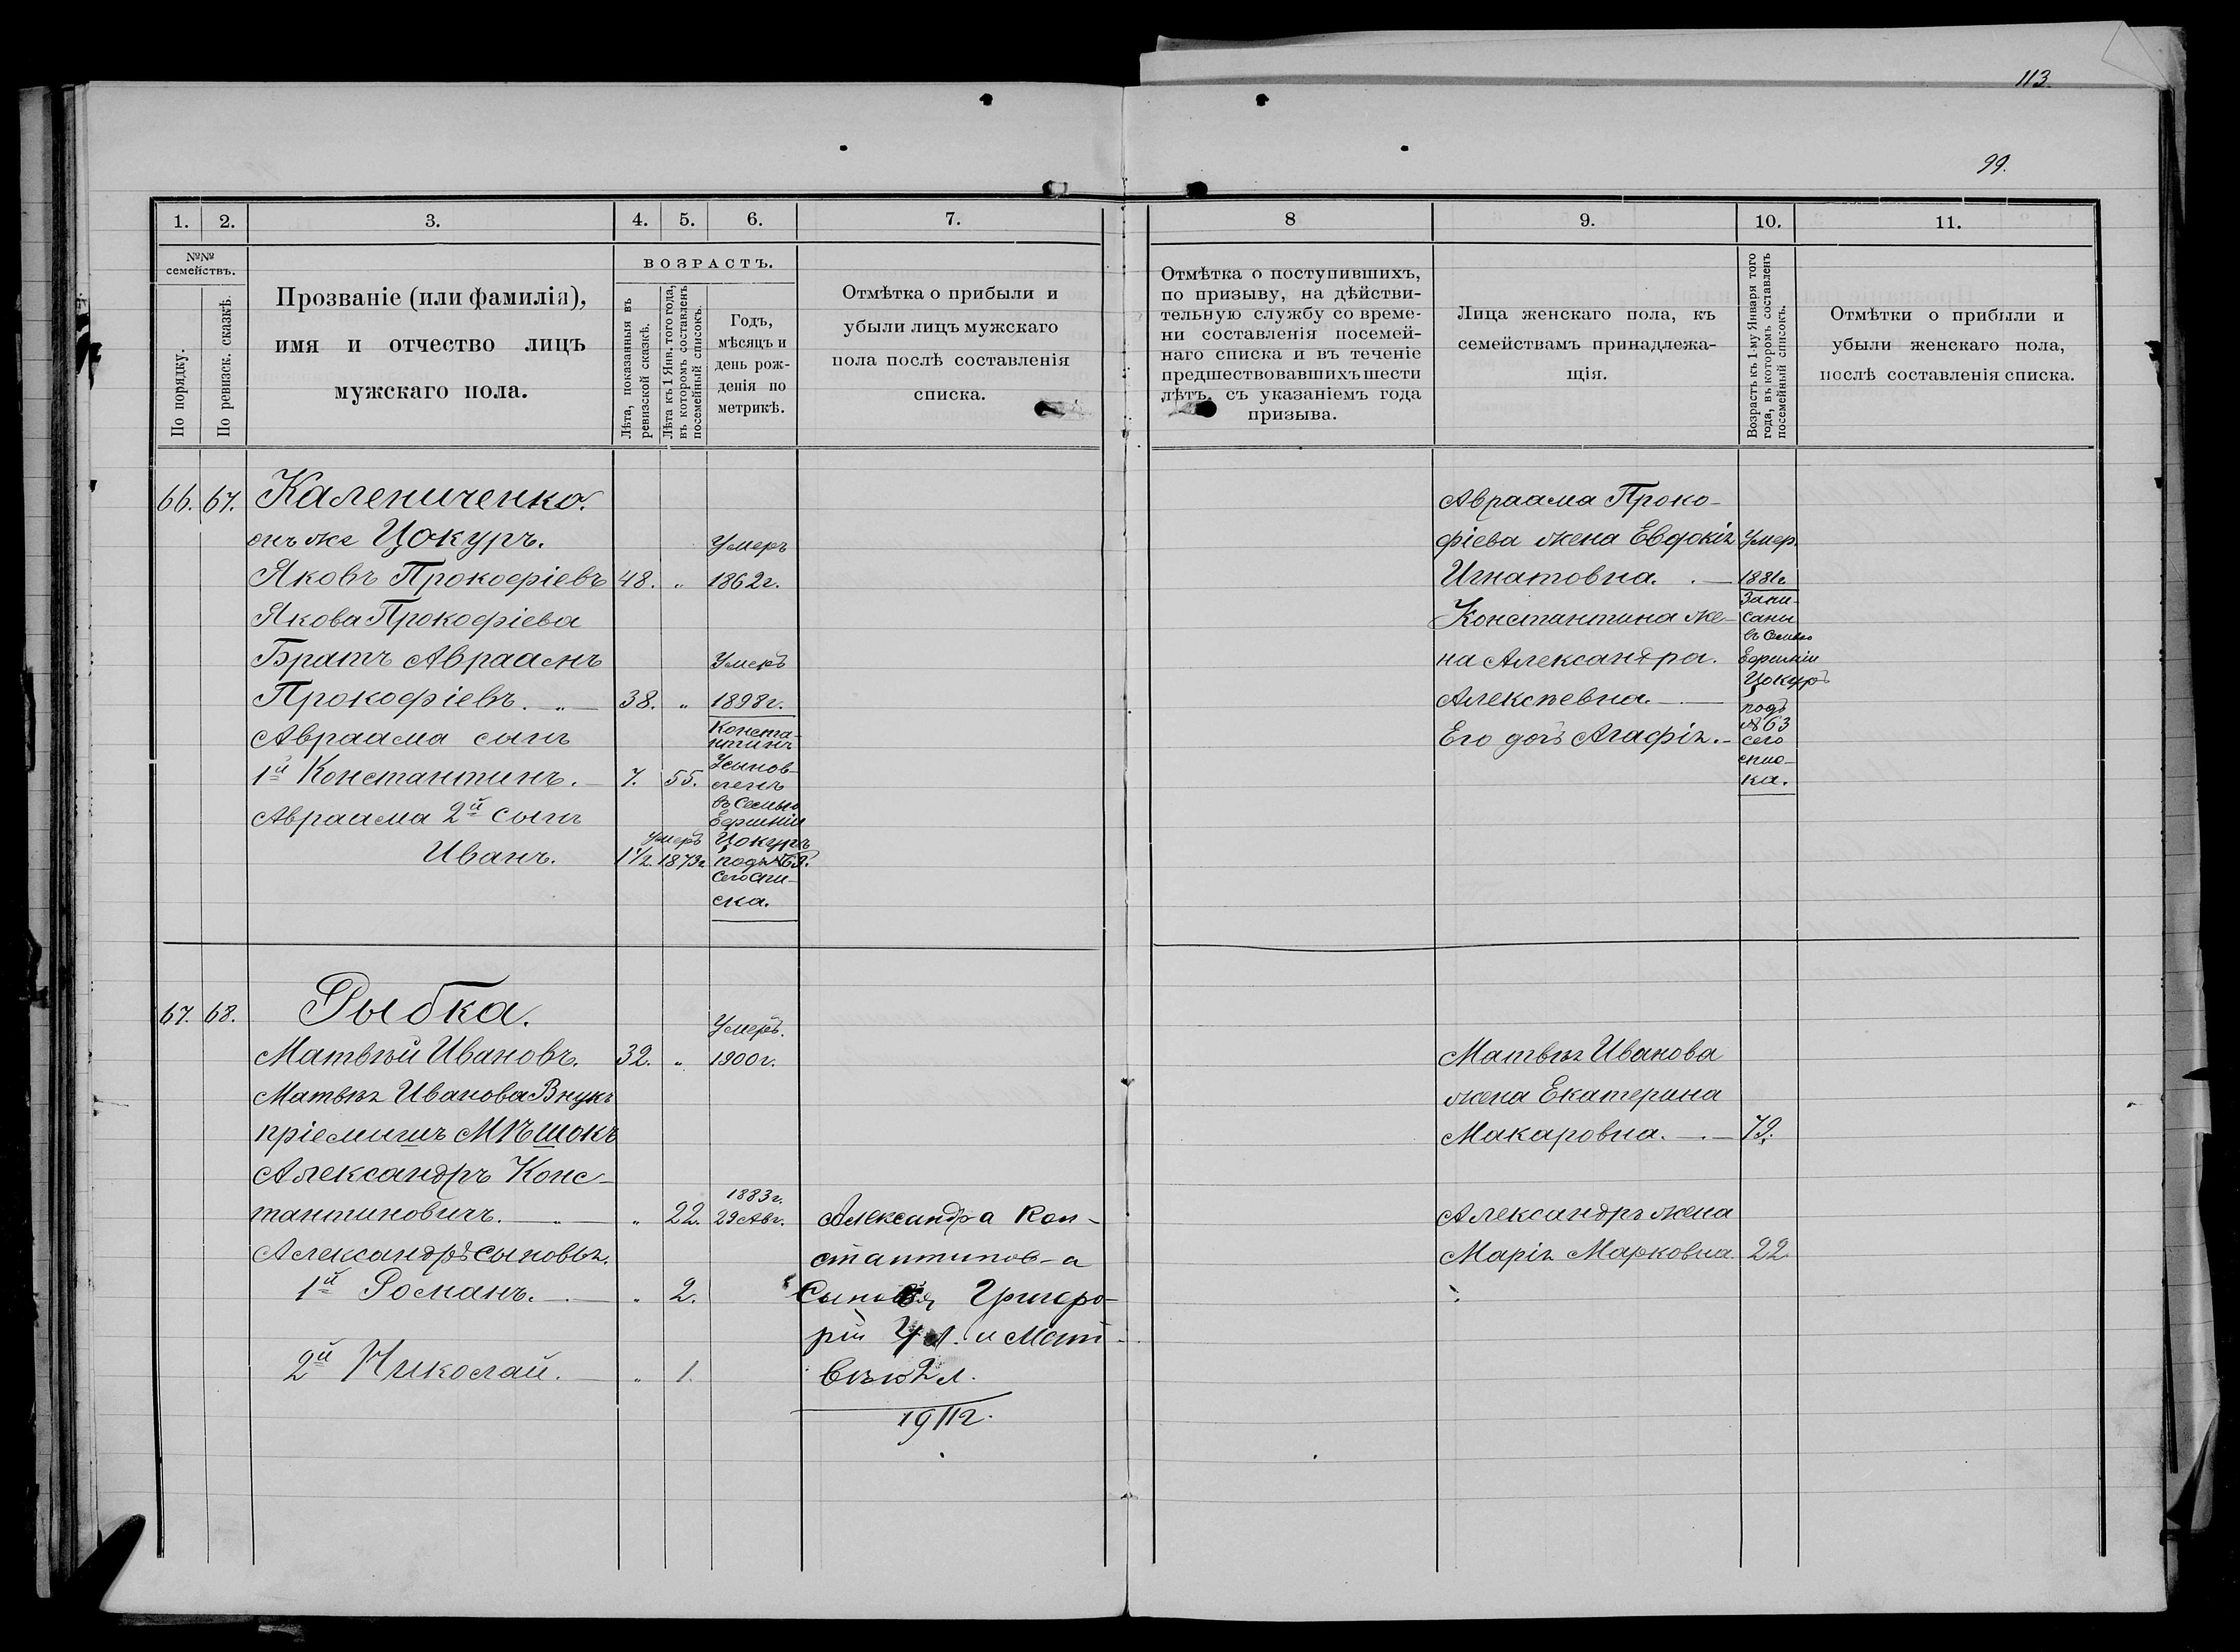 113.
99.
1. 2. 3. 4. 5. 6. 7.
№№ семействъ.
По порядку.
По ревизск. сказкѣ.
Прозваніе (или фамилія),
имя и отчество лицъ
мужскаго пола.
ВОЗРАСТЪ.
Лѣта, показанныя въ
ревизской сказкѣ.
Лѣта къ 1 Янв. того года,
въ которомъ составленъ
посемейный списокъ.
Годъ,
мѣсяцъ и
день рож-
денія по
метрикѣ.
Отмѣтка о прибыли и
убыли лицъ мужскаго
пола послѣ составленія
списка.
66. 67. Калениченко.
онъ же Цокуръ. Умеръ
Яковъ Прокофіевъ 48. „ 1862г.
Якова Прокофіева
Братъ Авраамъ Умеръ
Прокофіевъ. „ 38. „ 1898г.
Авраама сынъ
1й Константинъ. 7. 55.
Конста-
нтинъ
Усынов-
ленъ
въ Семью
Ефимія
Цокуръ
подъ №63.
сего спи-
ска.
Авраама 2й сынъ
Иванъ. 1½. Умеръ 1873г
67. 68. Рыбка.
Умеръ.
Матвѣй Ивановъ. 32. „ 1900г.
Матвѣя Иванова Внукъ
пріемышъ Мѣшокъ
Александръ Конс-
тантиновичъ. „ „ 22. 1883г. 29 Авг.
Александръ сыновья.
1й Романъ. „ 2.
2й Николай. „ 1.
Александра Кон-
стантинов-а
Сыновья Григоро-
рій 4 л. и Мат-
вѣю 2 л.
1911г.
8 9. 10. 11.
Отмѣтка о поступившихъ,
по призыву, на дѣйстви-
тельную службу со време-
ни составленія посемей-
наго списка и въ теченіе
предшествовавшихъ шести
лѣтъ, съ указаніемъ года
призыва.
Лица женскаго пола, къ
семействамъ принадлежа-
щія.
Возрастъ къ 1-му Января того
года, въ которомъ составленъ
посемейный списокъ.
Отмѣтки о прибыли и
убыли женскаго пола,
послѣ составленія списка.
Авраама Проко-
фіева жена Евдокія Умер.
Игнатовна. 1881г
Константина же-
на Александра.
Алексѣевна.
Его дочь Агафія.
Запи-
саны
въ Семью
Ефиміи
Цокуръ
подъ
№63
сего
спис-
ка.
Матвѣя Иванова
жена Екатерина
Макаровна. 79.
Александръ жена
Марія Марковна. 22